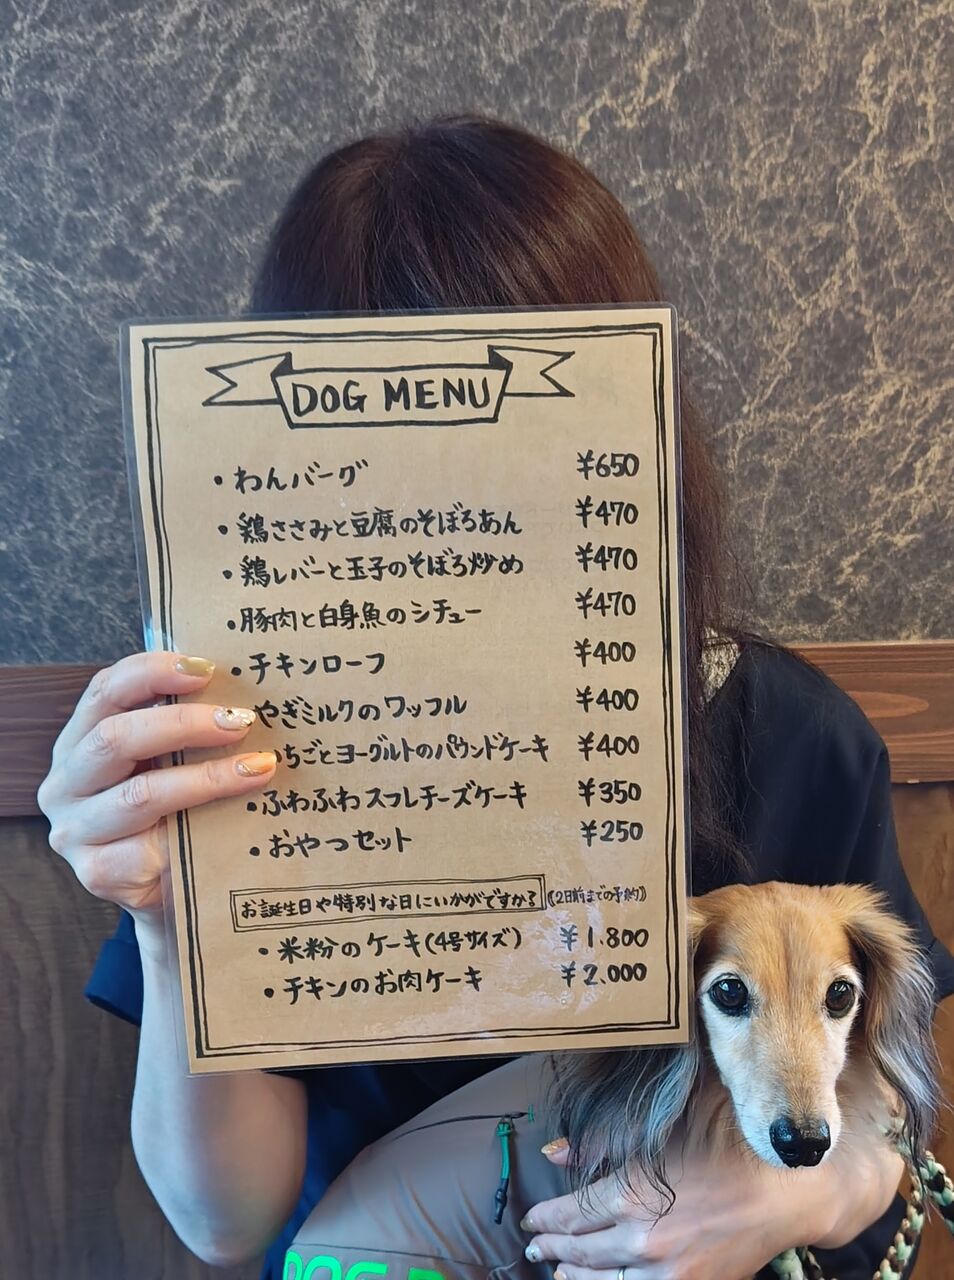 DOG MENU
・わんバーグ ¥650
・鶏ささみと豆腐のそぼろあん ¥470
・鶏レバーと玉子のそぼろ炒め ¥470
・豚肉と白身魚のシチュー ¥470
・チキンローフ ¥400
やぎミルクのワッフル ¥400
ちごとヨーグルトのパウンドケーキ ¥400
・ふわふわスフレチーズケーキ ¥350
・おやつセット ¥250
お誕生日や特別な日にいかがですか? 《2日前までの予約》
・米粉のケーキ(4号サイズ) ¥1.800
・チキンのお肉ケーキ ¥2.000
DOG